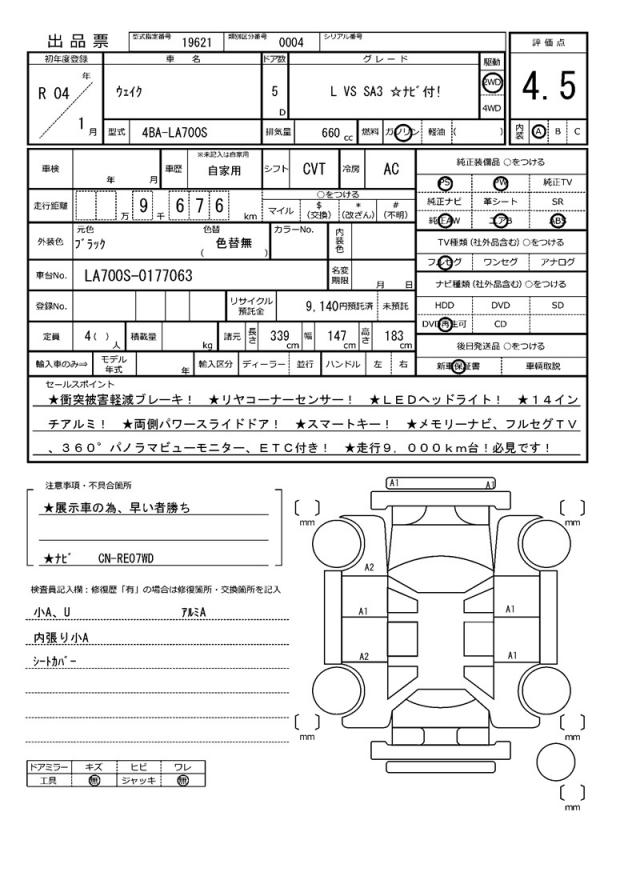 出品票 型式指定番号 19621 類別区分番号 0004 シリアル番号
初年度登録 車名 ドア数 グレード 駆動 評価点
R 04 年 1 月 ウェイク 5 D L VS SA3 ☆ナビ付! 2WD 4WD 4.5
型式 4BA-LA700S 排気量 660 cc 燃料 ガソリン 軽油 ( ) 内装 A B C
車検 年 月 車歴 ※未記入は自家用 自家用 シフト CVT 冷房 AC
走行距離 万 9 千 6 7 6 km ○をつける マイル $(交換) *(改ざん) #(不明)
外装色 元色 ブラック 色替 色替無 ( ) カラーNo. 内装色
車台No. LA700S-0177063 名変期限 月 日
登録No. リサイクル預託金 9,140円預託済 未預託
定員 4( ) 人 積載量 kg 諸元 長さ 339 cm 幅 147 cm 高さ 183 cm
輸入車のみ⇒ モデル年式 年 輸入区分 ディーラー 並行 ハンドル 左 右
純正装備品 ○をつける
PS PW 純正TV
純正ナビ 革シート SR
純正AW エアB ABS
TV種類(社外品含む)○をつける
フルセグ ワンセグ アナログ
ナビ種類(社外品含む)○をつける
HDD DVD SD
DVD再生可 CD
後日発送品 ○をつける
新車保証書 車輌取説
セールスポイント
★衝突被害軽減ブレーキ! ★リヤコーナーセンサー! ★LEDヘッドライト! ★14イン
チアルミ! ★両側パワースライドドア! ★スマートキー! ★メモリーナビ、フルセグTV
、360°パノラマビューモニター、ETC付き! ★走行9,000km台!必見です!
注意事項・不具合箇所
★展示車の為、早い者勝ち
★ナビ CN-RE07WD
検査員記入欄:修復歴「有」の場合は修復箇所・交換箇所を記入
小A、U アルミA
内張り小A
シートカバー
ドアミラー キズ ヒビ ワレ
工具 無 ジャッキ 無
A1 A1
[ ] mm [ ] mm
A2
A1 A1
A2 A1
[ ] mm [ ] mm
[ ] mm